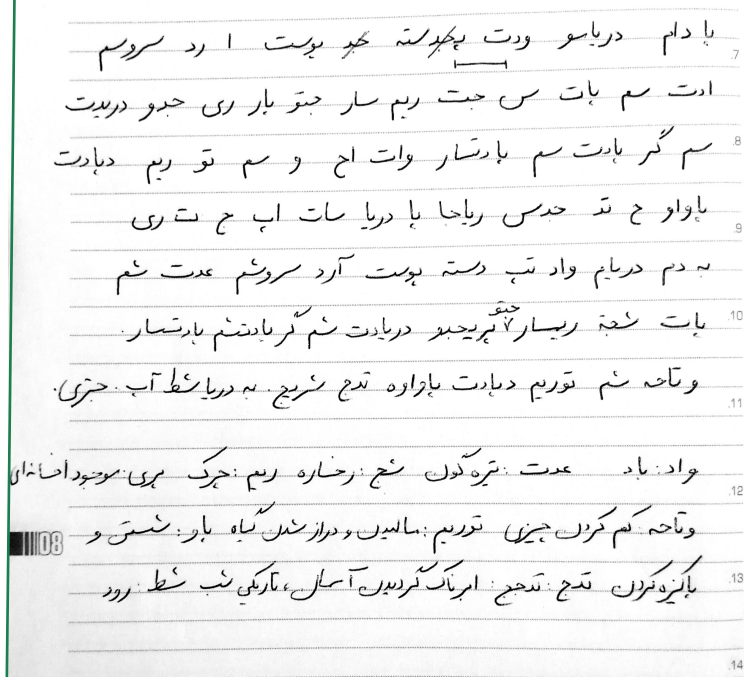 با دام دریاسو ودت دسته پوست ا رد سروسم
ادت سم بات س جت ریم سار جتو بار ری جدو دریدت
سم گر بادت سم بادتسار وات اح و سم تو ریم دبادت
باواو ح تد حدس ریاحا با دریا سات اب ج ت ری
به دم دریایم واد تب دسته پوست آرد سروشم عدت شم
بات شعبه ریسار جتو پریجبو دریادت شم گر بادتشم بادتسار.
وتاحه شم توریم دبادت باواوه تدج شریح. به دریا شط آب. جتری.
واد: باد عدت: تیره گون شج: رخساره ریم: چرک پری: موجود افسانه‌ای
وتاحه: کم کردن چیزی توریم: مالیدن و دراز شدن گیاه بار: شستن و
پاکیزه کردن تدج: تدجج: ابرناک گردیدن آسمان، تاریکی شب شط: رود
08
.7
.8
.9
.10
.11
.12
.13
.14